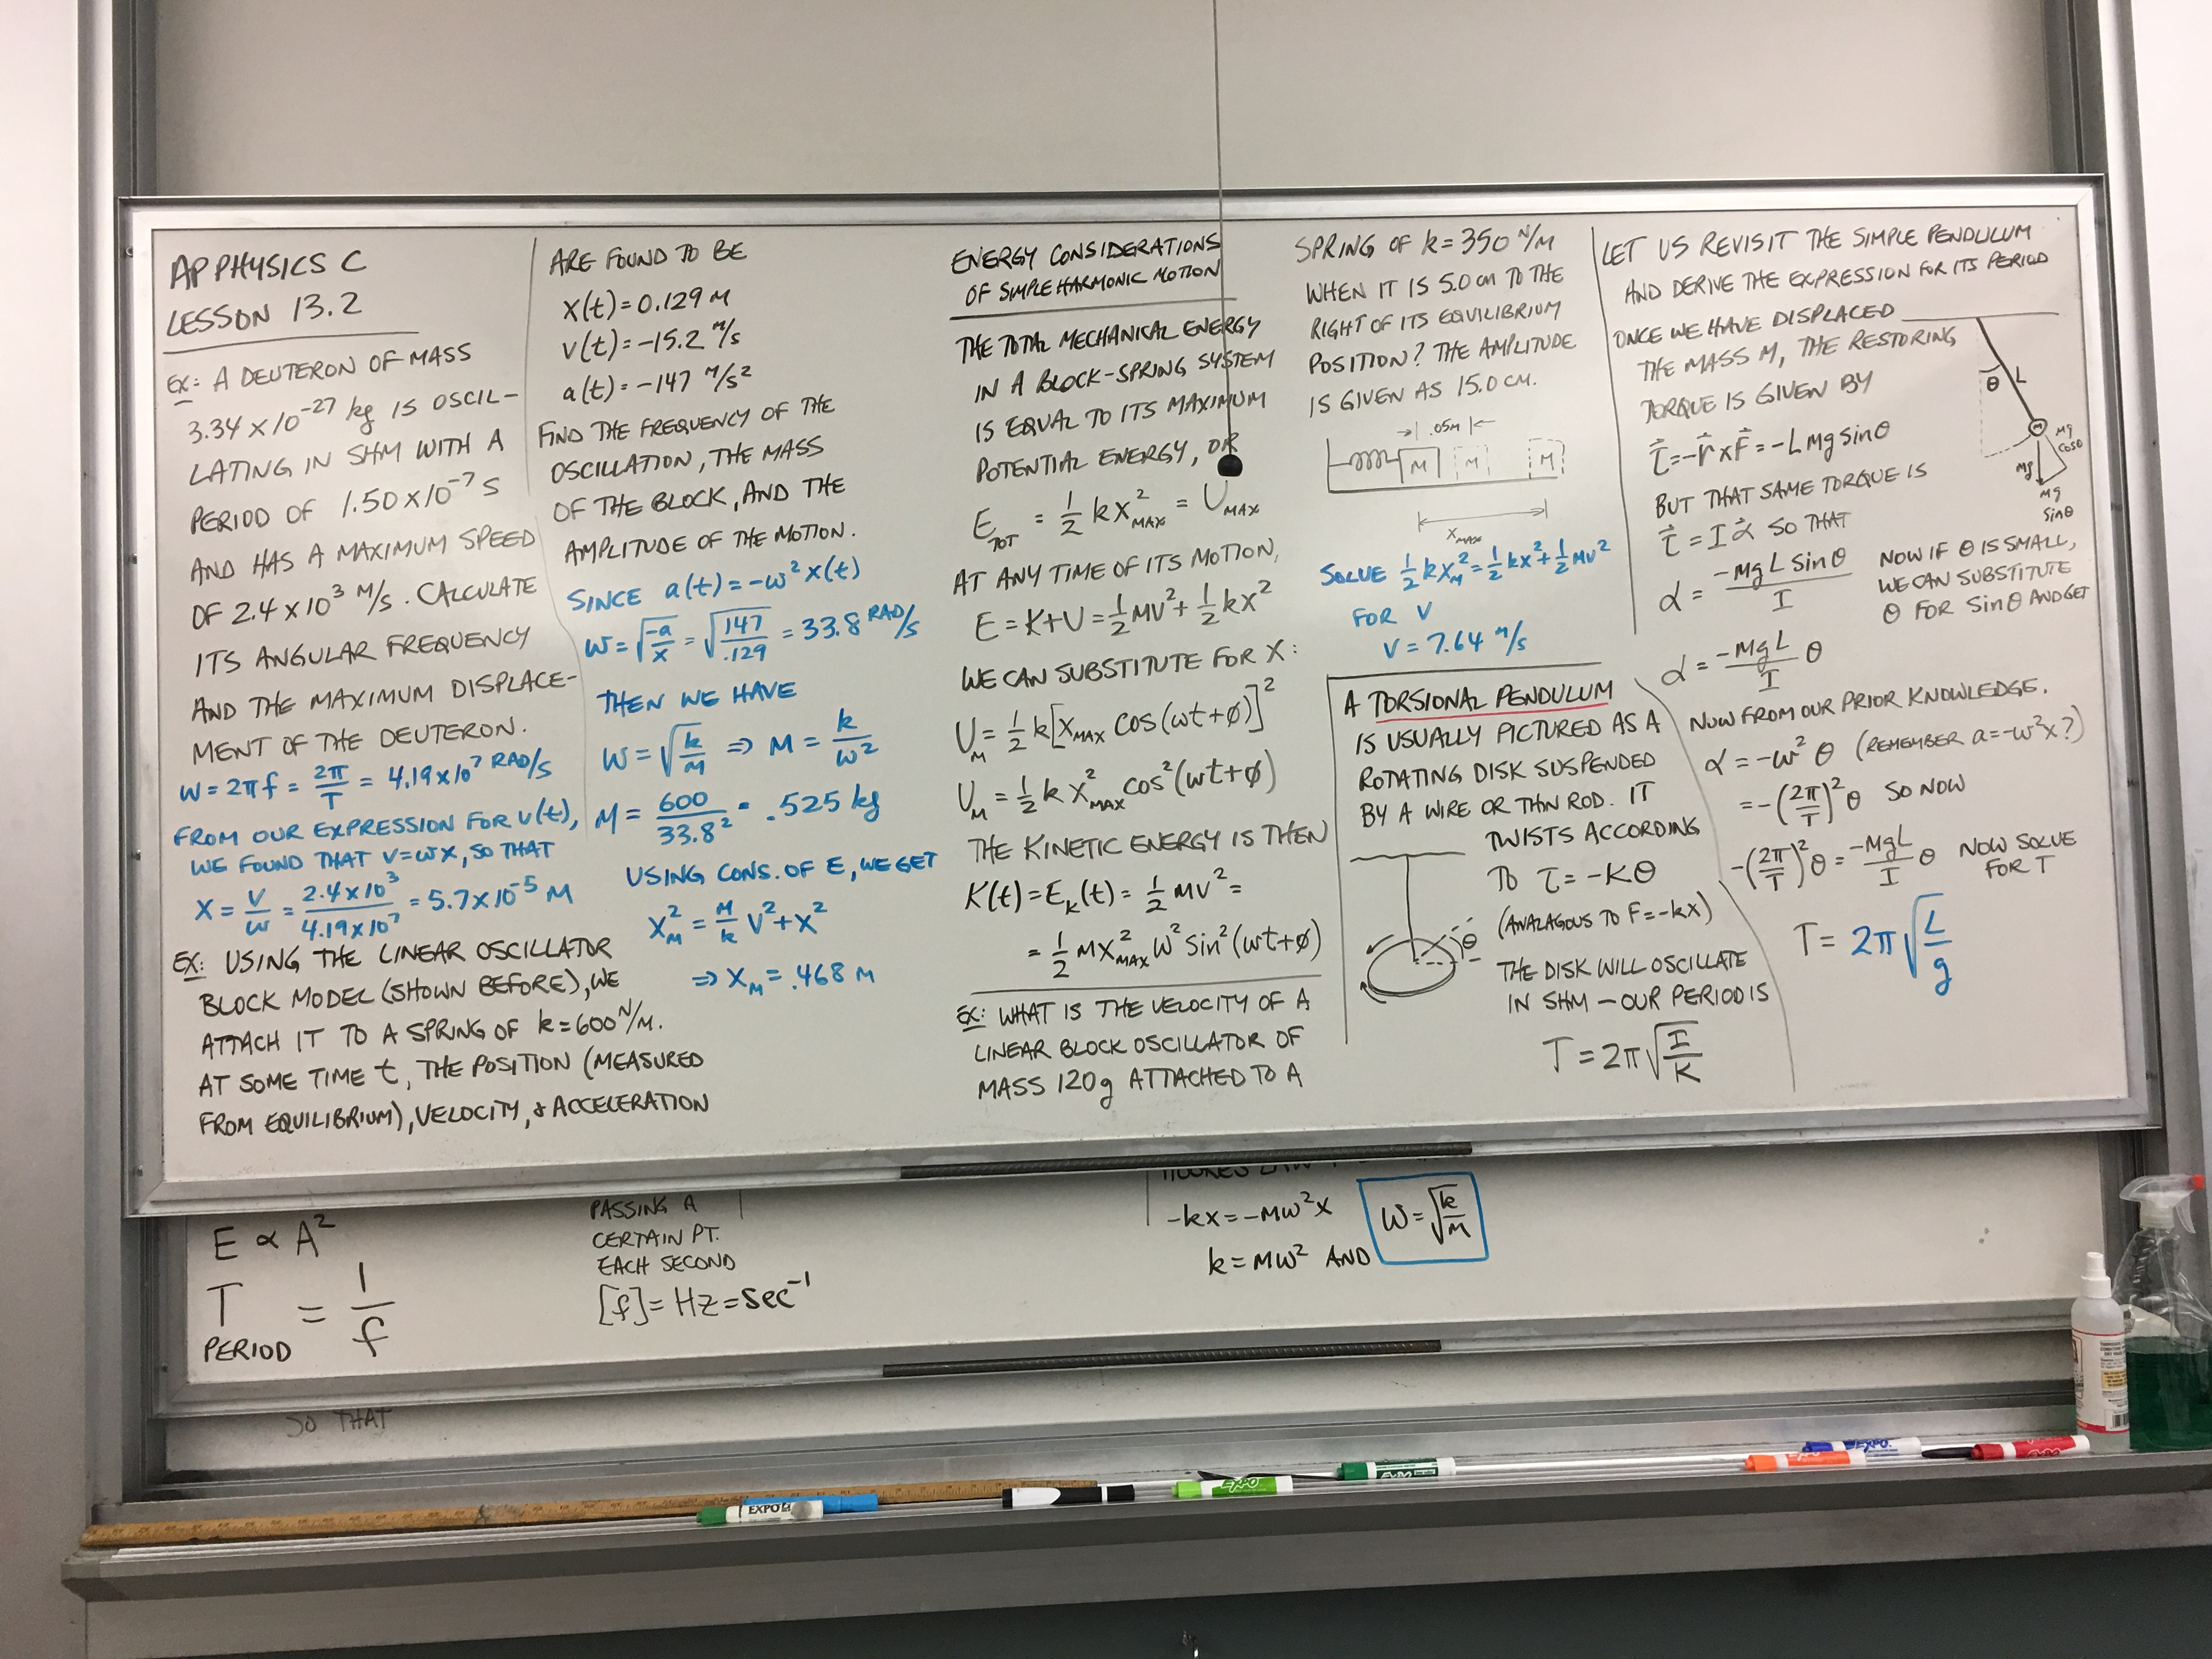 AP PHYSICS C
LESSON 13.2
EX: A DEUTERON OF MASS
3.34 x 10⁻²⁷ kg IS OSCIL-
LATING IN SHM WITH A
PERIOD OF 1.50 x 10⁻⁷ S
AND HAS A MAXIMUM SPEED
OF 2.4 x 10³ M/S. CALCULATE
ITS ANGULAR FREQUENCY
AND THE MAXIMUM DISPLACE-
MENT OF THE DEUTERON.
W = 2πf = 2π/T = 4.19 x 10⁷ RAD/S
FROM OUR EXPRESSION FOR V(t),
WE FOUND THAT V=WX, SO THAT
X = V/W = 2.4 x 10³/4.19 x 10⁷ = 5.7 x 10⁻⁵ M
EX: USING THE LINEAR OSCILLATOR
BLOCK MODEL (SHOWN BEFORE), WE
ATTACH IT TO A SPRING OF k=600 N/M.
AT SOME TIME t, THE POSITION (MEASURED
FROM EQUILIBRIUM), VELOCITY, & ACCELERATION
ARE FOUND TO BE
X(t) = 0.129 M
V(t) = -15.2 M/S
a(t) = -147 M/S²
FIND THE FREQUENCY OF THE
OSCILLATION, THE MASS
OF THE BLOCK, AND THE
AMPLITUDE OF THE MOTION.
SINCE a(t) = -ω²X(t)
W = √(-a/X) = √(147/.129) = 33.8 RAD/S
THEN WE HAVE
W = √(k/M) ⇒ M = k/W²
M = 600/33.8² = .525 kg
USING CONS. OF E, WE GET
X²M = M/k V² + X²
⇒ XM = .468 M
ENERGY CONSIDERATIONS
OF SIMPLE HARMONIC MOTION
THE TOTAL MECHANICAL ENERGY
IN A BLOCK-SPRING SYSTEM
IS EQUAL TO ITS MAXIMUM
POTENTIAL ENERGY, OR
ETOT = 1/2 kX²MAX = UMAX
AT ANY TIME OF ITS MOTION,
E = K+U = 1/2 MV² + 1/2 kX²
WE CAN SUBSTITUTE FOR X:
UM = 1/2 k[XMAX COS(ωt+φ)]²
UM = 1/2 k X²MAX COS²(ωt+φ)
THE KINETIC ENERGY IS THEN
K(t) = EK(t) = 1/2 MV² =
= 1/2 MX²MAX W² Sin²(ωt+φ)
EX: WHAT IS THE VELOCITY OF A
LINEAR BLOCK OSCILLATOR OF
MASS 120g ATTACHED TO A
SPRING OF k = 350 N/M
WHEN IT IS 5.0 cm TO THE
RIGHT OF ITS EQUILIBRIUM
POSITION? THE AMPLITUDE
IS GIVEN AS 15.0 CM.
→| .05M |←
M M M
XMAX
SOLVE 1/2 kX²M = 1/2 kX² + 1/2 MV²
FOR V
V = 7.64 M/S
A TORSIONAL PENDULUM
IS USUALLY PICTURED AS A
ROTATING DISK SUSPENDED
BY A WIRE OR THIN ROD. IT
TWISTS ACCORDING
TO τ = -Kθ
(ANALAGOUS TO F=-kX)
θ
THE DISK WILL OSCILLATE
IN SHM - OUR PERIOD IS
T = 2π√(I/K)
LET US REVISIT THE SIMPLE PENDULUM
AND DERIVE THE EXPRESSION FOR ITS PERIOD
ONCE WE HAVE DISPLACED
THE MASS M, THE RESTORING
TORQUE IS GIVEN BY
τ⃗ = -r⃗ x F⃗ = -L Mg Sinθ
BUT THAT SAME TORQUE IS
τ⃗ = I α⃗ SO THAT
α = -MgL Sinθ/I
NOW IF θ IS SMALL,
WE CAN SUBSTITUTE
θ FOR Sinθ AND GET
θ
L
M
Mg
Cosθ
Mg
Mg
Sinθ
α = -MgL/I θ
NOW FROM OUR PRIOR KNOWLEDGE.
α = -W² θ (REMEMBER a=-W²X?)
= -(2π/T)² θ SO NOW
-(2π/T)² θ = -MgL/I θ NOW SOLVE
FOR T
T = 2π√(L/g)
E ∝ A²
T = 1/f
PERIOD
PASSING A
CERTAIN PT.
EACH SECOND
[f] = HZ = Sec⁻¹
-kX = -MW²X
k = MW² AND
W = √(k/M)
SO THAT
EXPO
EXPO
EXPO
EXPO